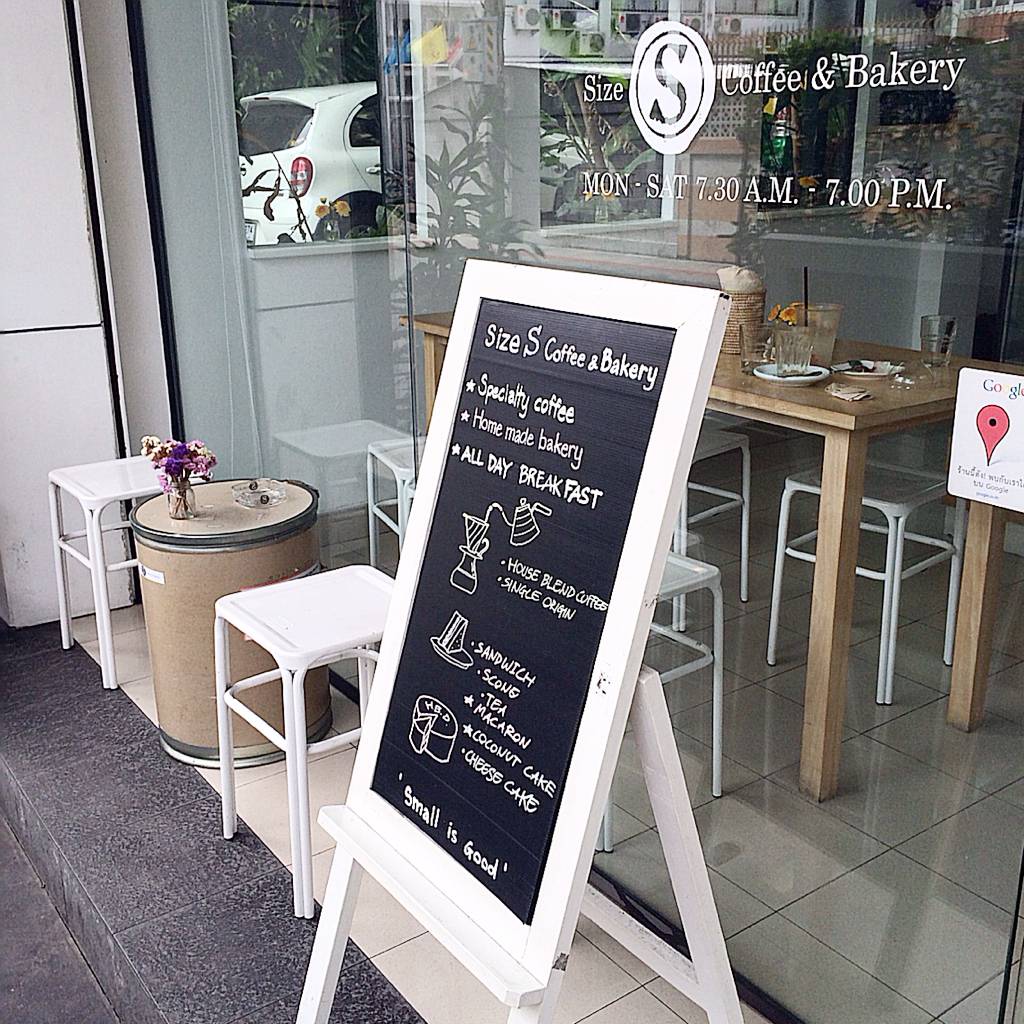 Size S Coffee & Bakery
MON - SAT 7.30 A.M. - 7.00 P.M.
Size S Coffee & Bakery
★ Specialty coffee
★ Home made bakery
★ ALL DAY BREAKFAST
· HOUSE BLEND COFFEE
· SINGLE ORIGIN
· SANDWICH
· SCONE
· TEA
★ MACARON
★ COCONUT CAKE
· CHEESE CAKE
H.B.D
'Small is Good'
Google
ร้านนี้ดัง! พบกับเราได้
บน Google